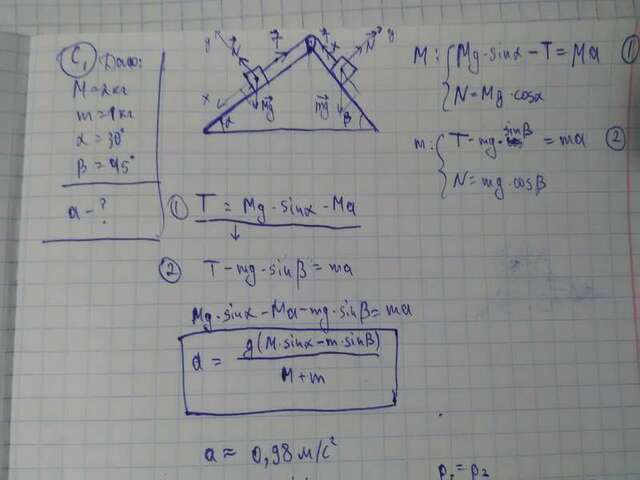 C₁ Дано:
M = 2 кг
m = 1 кг
α = 30°
β = 45°
a - ?
y N T T N y
x x
Mg mg
α β
M: { Mg·sinα - T = Ma ①
N = Mg·cosα
m: { T - mg·sinβ = ma ②
N = mg·cosβ
① T = Mg·sinα - Ma
↓
② T - mg·sinβ = ma
Mg·sinα - Ma - mg·sinβ = ma
a = g(M·sinα - m·sinβ) / M + m
a ≈ 0,98 м/с²
p₁ = p₂